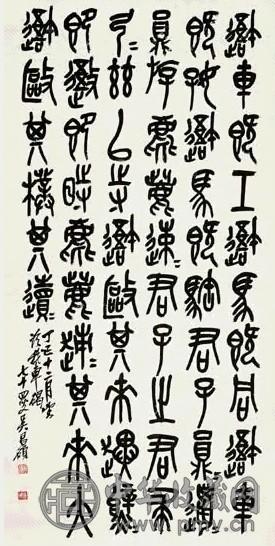 避車既工避馬既同避車
既好避馬既騊君子員邋
員斿麀鹿速君子之求
弓茲以寺避敺其來
即時麀鹿趚其來大
避敺其樸其
丁巳十二月雪
臨獵車碣
七十四叟吳昌碩
中华收藏网